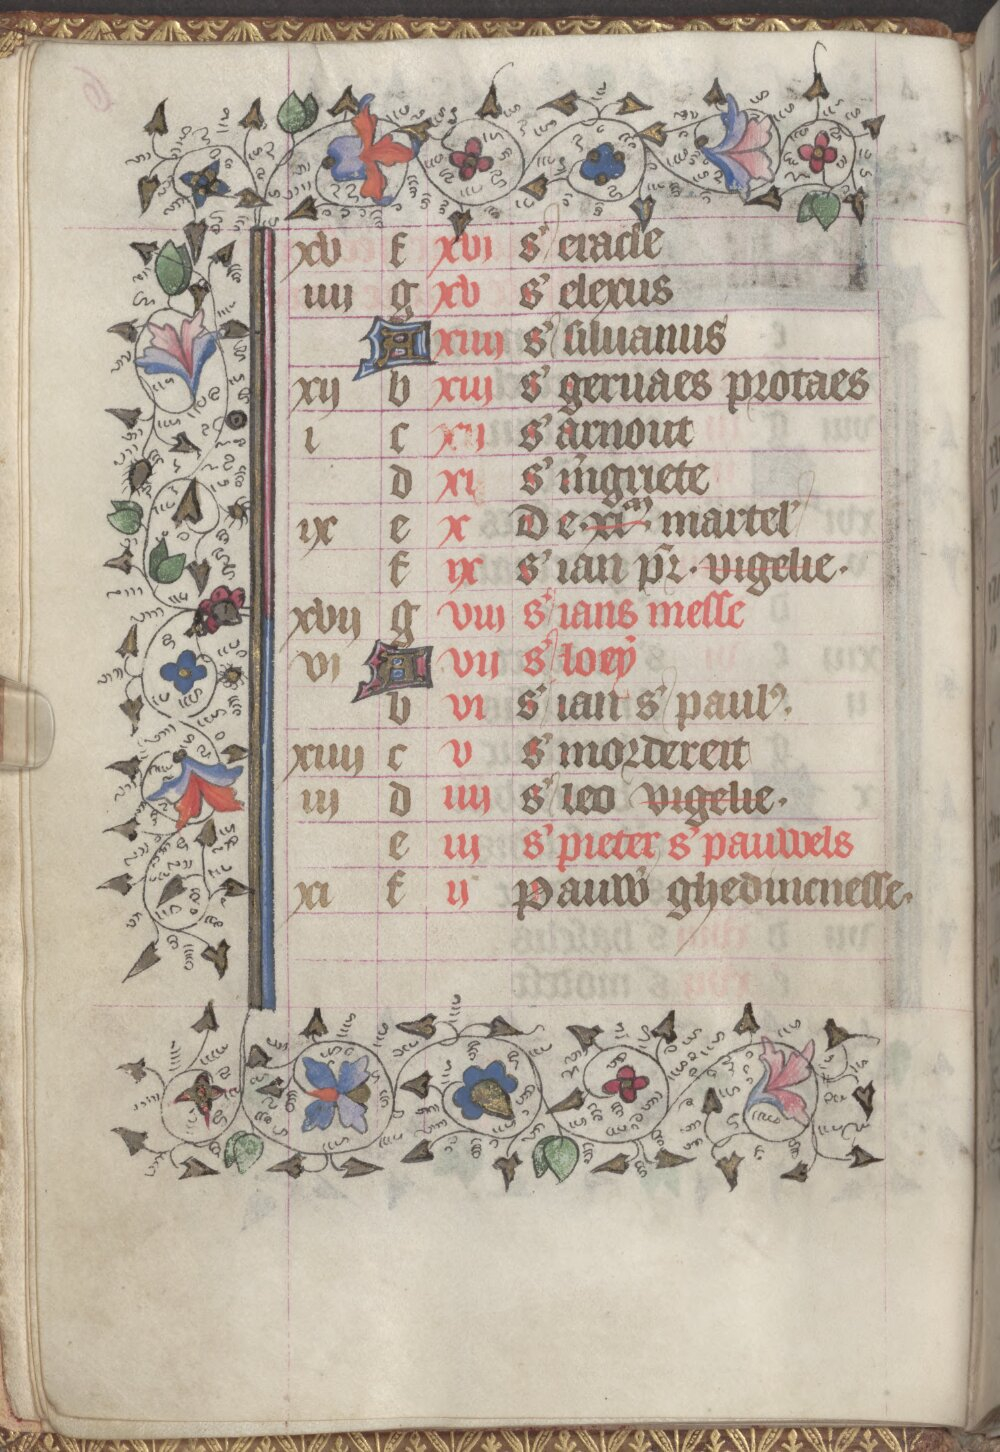 xv f xvi s' eracle
iiii g xv s' elexus
A xiiii s' siluanus
xij b xiij s' geruaes protaes
i c xij s' arnout
d xi s' m'griete
ix e x De · xm · martel'
f ix s' ian pr · vigelie ·
xvij g viij s' ians messe
vi A vij s' loey
b vi s' ian s' paul'.
xiiij c v s' mordereit
iij d iiij s' leo vigelie ·
e iij s' pieter s' pauwels
xi f ij pauw' ghedincnesse ·